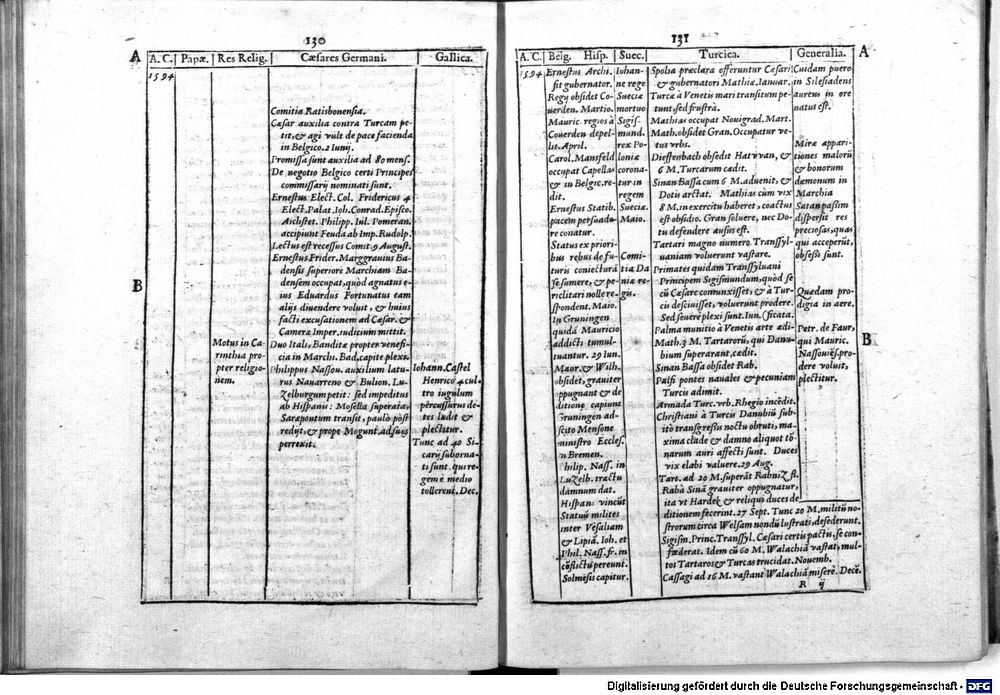 130
A
A. C.
Papæ.
Res Relig.
Cæsares Germani.
Gallica.
1594
Motus in Ca-
rinthia pro-
pter religio-
nem.
Comitia Ratisbonensia.
Cæsar auxilia contra Turcam pe-
tit, & agi vult de pace facienda
in Belgico. 2 Iunij.
Promissa sunt auxilia ad 80 mens.
De negotio Belgico certi Principes
commissarij nominati sunt.
Ernestus Elect. Col. Fridericus 4
Elect. Palat. Ioh. Conrad. Episco.
Aichstet. Philipp. Iul. Pomeran.
accipiunt Feuda ab Imp. Rudolp.
Lectus est recessus Comit. 9 August.
Ernestus Frider. Marggrauius Ba-
densis superiorẽ Marchiam Ba-
densem occupat, quòd agnatus e-
ius Eduardus Fortunatus eam
alijs diuendere voluit, & huius
facti excusationem ad Cæsar. &
Cameræ Imper. iudicium mittit.
Duo Itali, Banditæ propter venefi-
cia in Marchi. Bad. capite plexi.
Philippus Nassou. auxilium latu-
rus Nauarreno & Bulion. Lu-
zelburgum petit: sed impeditus
ab Hispanis: Mosella superata,
Saræpontum transit, paulò pòst
redijt, & prope Mogunt. ad suos
perrexit.
Iohann. Castel
Henrico 4 cul-
tro iugulum
percussurus dẽ-
tes lædit &
plectitur.
Tunc ad 40 Si-
carij suborna-
ti sunt. qui re-
gem è medio
tollerent. Dec.
B
131
A
A. C.
Belg. Hisp.
Suec.
Turcica.
Generalia.
1594
Ernestus Archi.
fit gubernator.
Regij obsidet Co-
uerden. Martio.
Mauric. regios à
Couerden depel-
lit. April.
Carol. Mansfeld
occupat Capellas
& in Belgic. re-
dit.
Ernestus Statib.
pacem persuade-
re conatur.
Status ex priori-
bus rebus de fu-
turis coniecturã
se sumere, & pe-
riclitari nolle re-
spondent. Maio.
In Gruningen
quidã Mauricio
addicti tumul-
tuantur. 29 Iun.
Maur. & Wilh.
obsidet, grauiter
oppugnant & de
ditionẽ capiunt
Gruningen ad-
scito Mensone
ministro Eccles.
in Bremen.
Philip. Nass. in
Luzelb. tractu
damnum dat.
Hispani vincũt
Statuũ milites
inter Vesaliam
& Lipiã. Ioh. et
Phil. Nass. fr. in
cõflictu pereunt.
Solmẽsis capitur.
Iohan-
ne rege
Sueciæ
mortuo
Sigis-
mund.
rex Po-
loniæ
corona-
tur in
regem
Sueciæ.
Maio.
Comi-
tia Da
niæ re-
gis.
Spolia præclara offeruntur Cæsari
& gubernatori Mathiæ. Ianuar.
Turcæ à Venetis mari transitum pe-
tunt, sed frustrà.
Mathias occupat Nouigrad. Mart.
Math. obsidet Gran. Occupatur ve-
tus vrbs.
Dieffenbach obsedit Hatvvan, &
6 M. Turcarum cædit.
Sinan Bassa cum 6 M. aduenit, &
Dotis arctat. Mathias cùm vix
8 M. in exercitu haberet, coactus
est obsidio. Gran soluere, nec Do-
tis defendere ausus est.
Tartari magno numero Transsyl-
uaniam voluerunt vastare.
Primates quidam Transsyluani
Principem Sigismundum, quòd se
cũ Cæsare coniunxisset, & à Tur-
cis desciuisset, voluerunt prodere.
Sed seuerè plexi sunt. Iun. (ficata.
Palma munitio à Venetis arte ædi-
Math. 3 M. Tartarorũ, qui Danu-
bium superarant, cædit.
Sinan Bassa obsidet Rab.
Palfi pontes nauales & pecuniam
Turcis adimit.
Armada Turc. vrb. Rhegio incẽdit.
Christiani à Turcis Danubiũ sub-
itò transgressis noctu obruti, ma-
xima clade & damno aliquot tõ-
narum auri affecti sunt. Duces
vix elabi valuere. 29 Aug.
Tart. ad 20 M. superãt Rabniz fl.
Rabâ Sinã grauiter oppugnatur,
ita vt Hardek & reliqui duces de
ditionem fecerint. 27 Sept. Tunc 20 M. militũ no-
strorum circa Welsam nondũ lustrati, desederunt.
Sigism. Princ. Transsyl. Cæsari certis pactis, se con-
fœderat. Idem cũ 60 M. Walachiã vastat, mul-
tos Tartaros & Turcas trucidat. Nouemb.
Cassagi ad 16 M. vastant Walachiã miserè. Decẽ.
Cuidam puero
in Silesia dens
aureus in ore
natus est.
Miræ appari-
tiones malorũ
& bonorum
dæmonum in
Marchia
Satan passim
dispersit res
preciosas, quas
qui acceperũt,
obsessi sunt.
Quædam pro-
digia in aere.
Petr. de Faur,
qui Mauric.
Nassouiẽs. pro-
dere voluit,
plectitur.
B
R ij
Digitalisierung gefördert durch die Deutsche Forschungsgemeinschaft - DFG